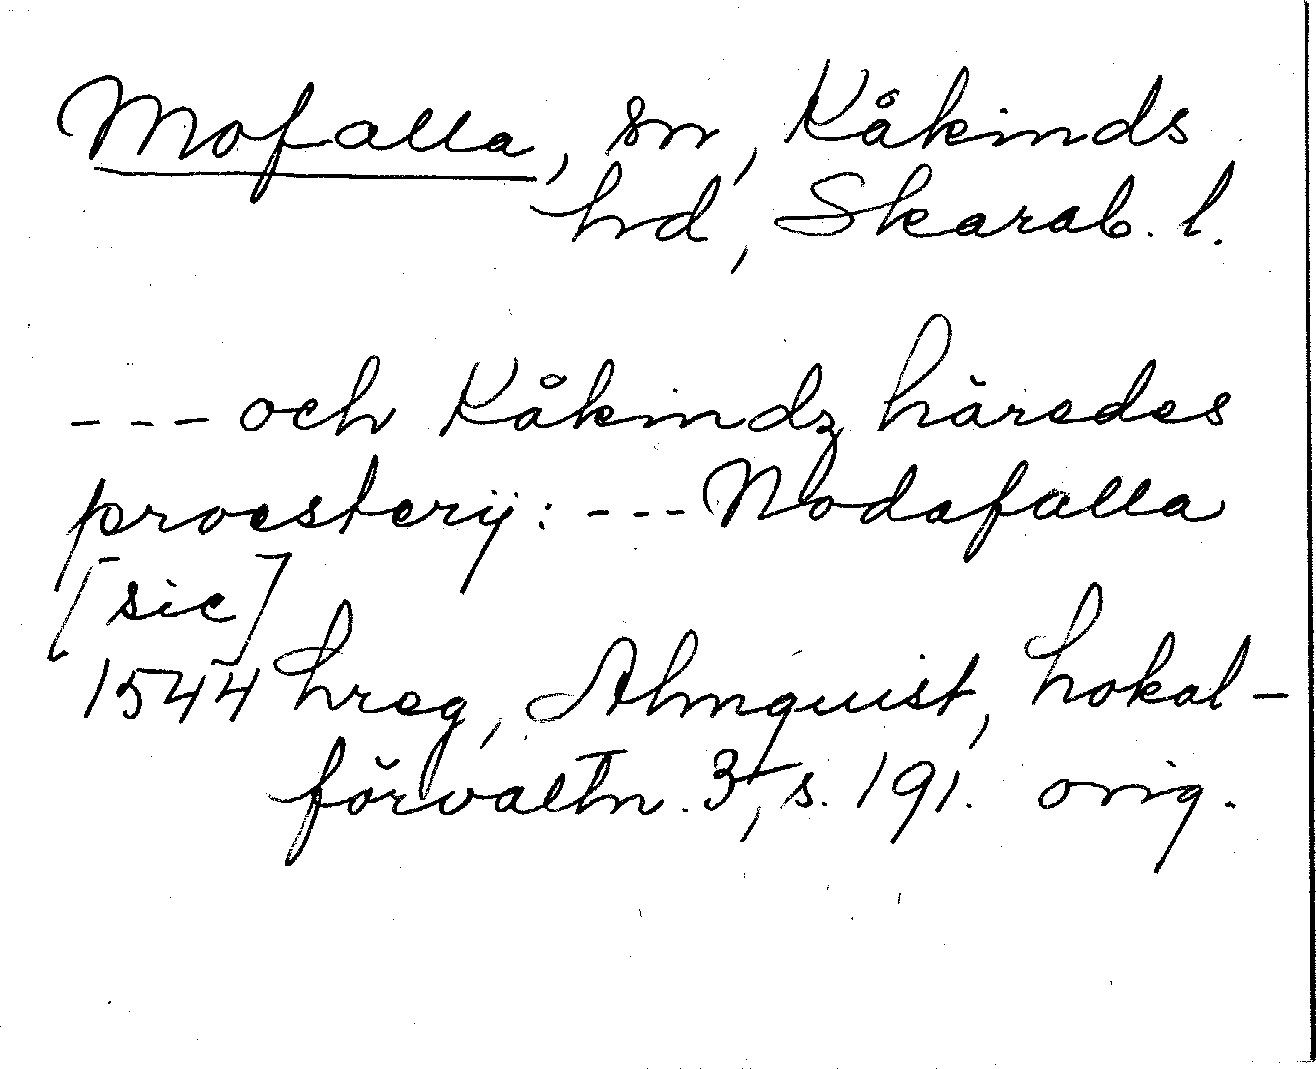 Mofalla, sn, Kåkinds
hd, Skarab. l.
--- och Kåkindz häredes
proesterij: --- Modafalla
[sic]
1544 hreg, Almquist, Lokal-
förvaltn. 3, s. 191. orig.